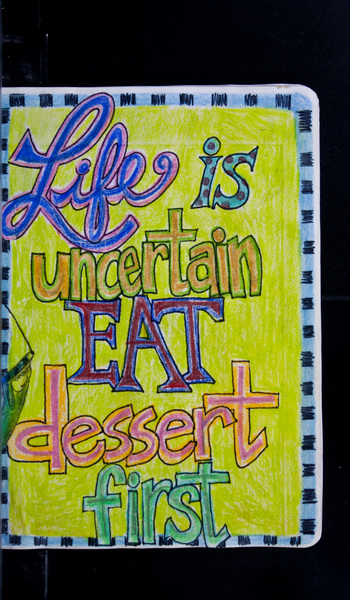 Life is
uncertain
EAT
dessert
first